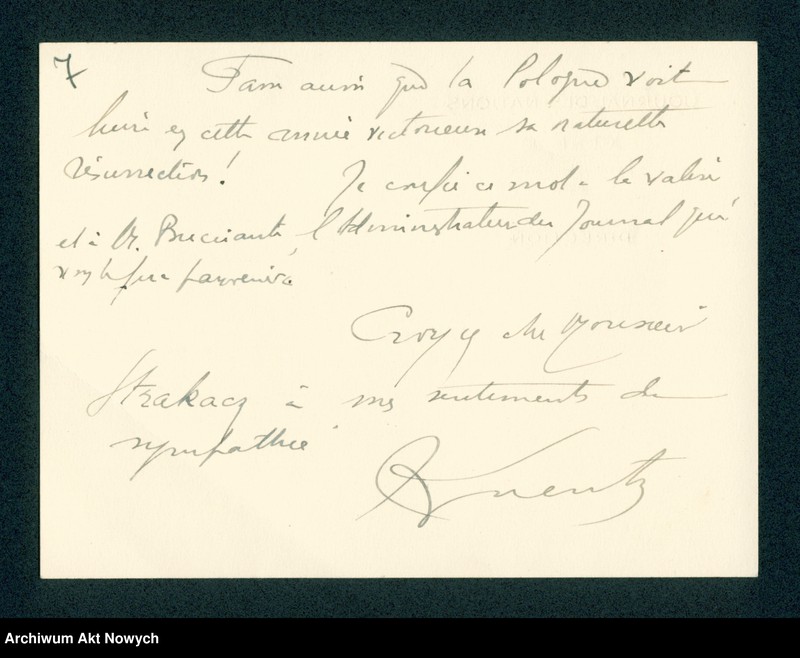 7
Fasse aussi que la Pologne voit
luire en cette année victorieuse sa naturelle
résurrection!
Je confie ce mot à la valise
et à M. Bucciante, l'Administrateur du Journal qui
vous le fera parvenir.
Croyez cher Monsieur
Strakacz à mes sentiments de
sympathie
Kuentz
Archiwum Akt Nowych